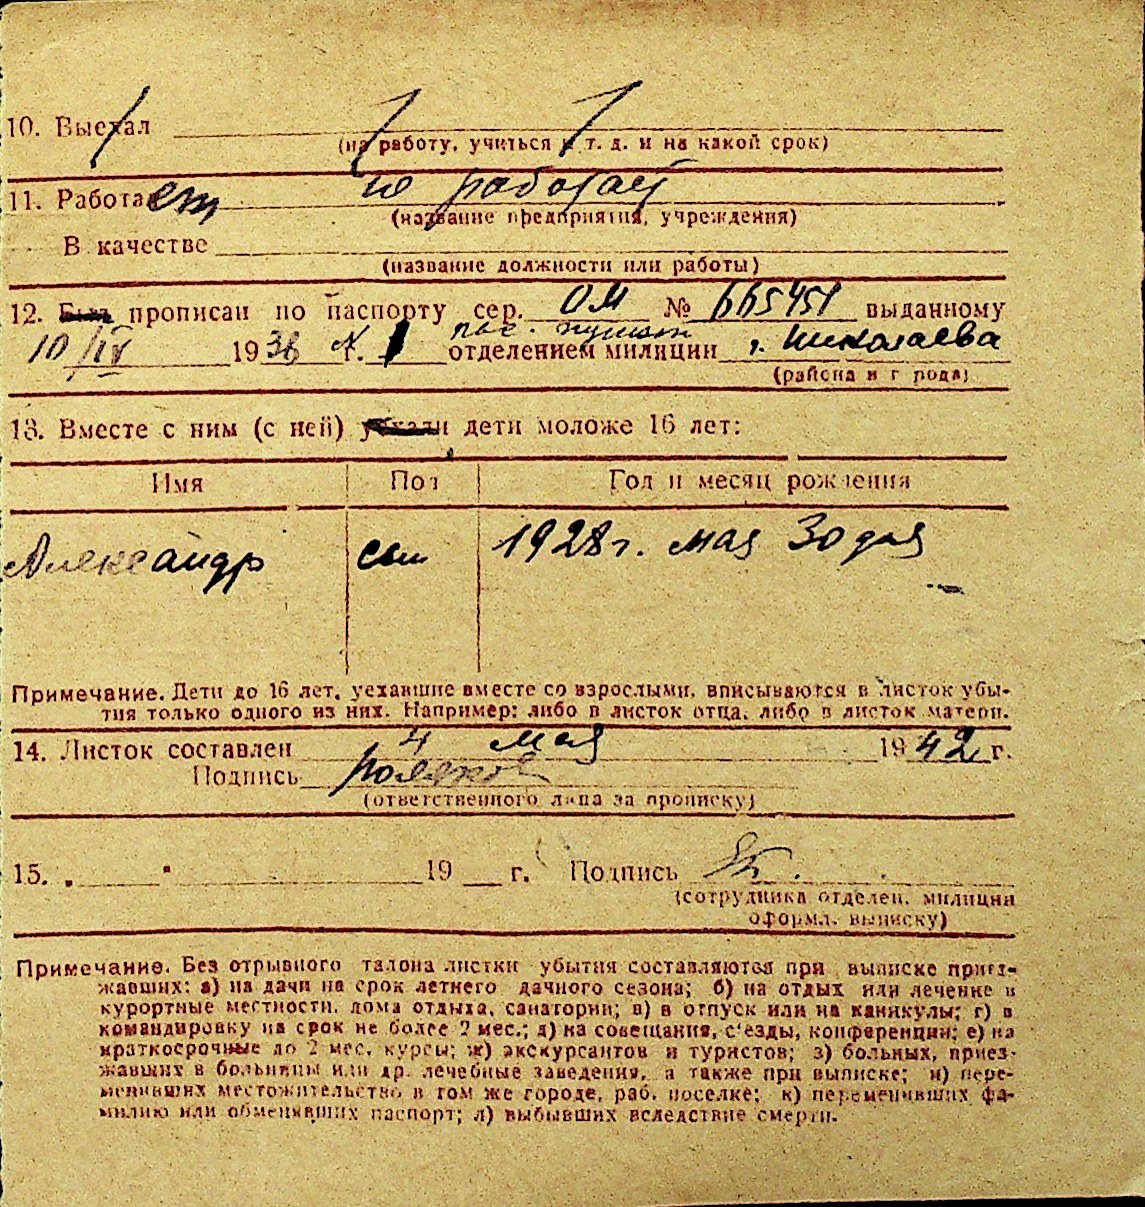 10. Выехал
(на работу, учиться и т. д. и на какой срок)
11. Работает не работает
(название предприятия, учреждения)
В качестве
(название должности или работы)
12. Был прописан по паспорту сер. ОМ № 665451 выданному
10/IV 1938 г. 1 отделением милиции г. Николаева
(района и города)
13. Вместе с ним (с ней) уехали дети моложе 16 лет:
Имя Пол Год и месяц рождения
Александр сын 1928 г. мая 30 дня
Примечание. Дети до 16 лет, уехавшие вместе со взрослыми, вписываются в листок убы-
тия только одного из них. Например: либо в листок отца, либо в листок матери.
14. Листок составлен 4 мая 1942 г.
Подпись
(ответственного лица за прописку)
15. „ " 19 г. Подпись
(сотрудника отделен. милиции
оформл. выписку)
Примечание. Без отрывного талона листки убытия составляются при выписке приез-
жавших: а) на дачи на срок летнего дачного сезона; б) на отдых или лечение в
курортные местности, дома отдыха, санатории; в) в отпуск или на каникулы; г) в
командировку на срок не более 2 мес.; д) на совещания, с'езды, конференции; е) на
краткосрочные до 2 мес. курсы; ж) экскурсантов и туристов; з) больных, приез-
жавших в больницы или др. лечебные заведения, а также при выписке; и) пере-
менивших местожительство в том же городе, раб. поселке; к) переменивших фа-
милию или обменявших паспорт; л) выбывших вследствие смерти.